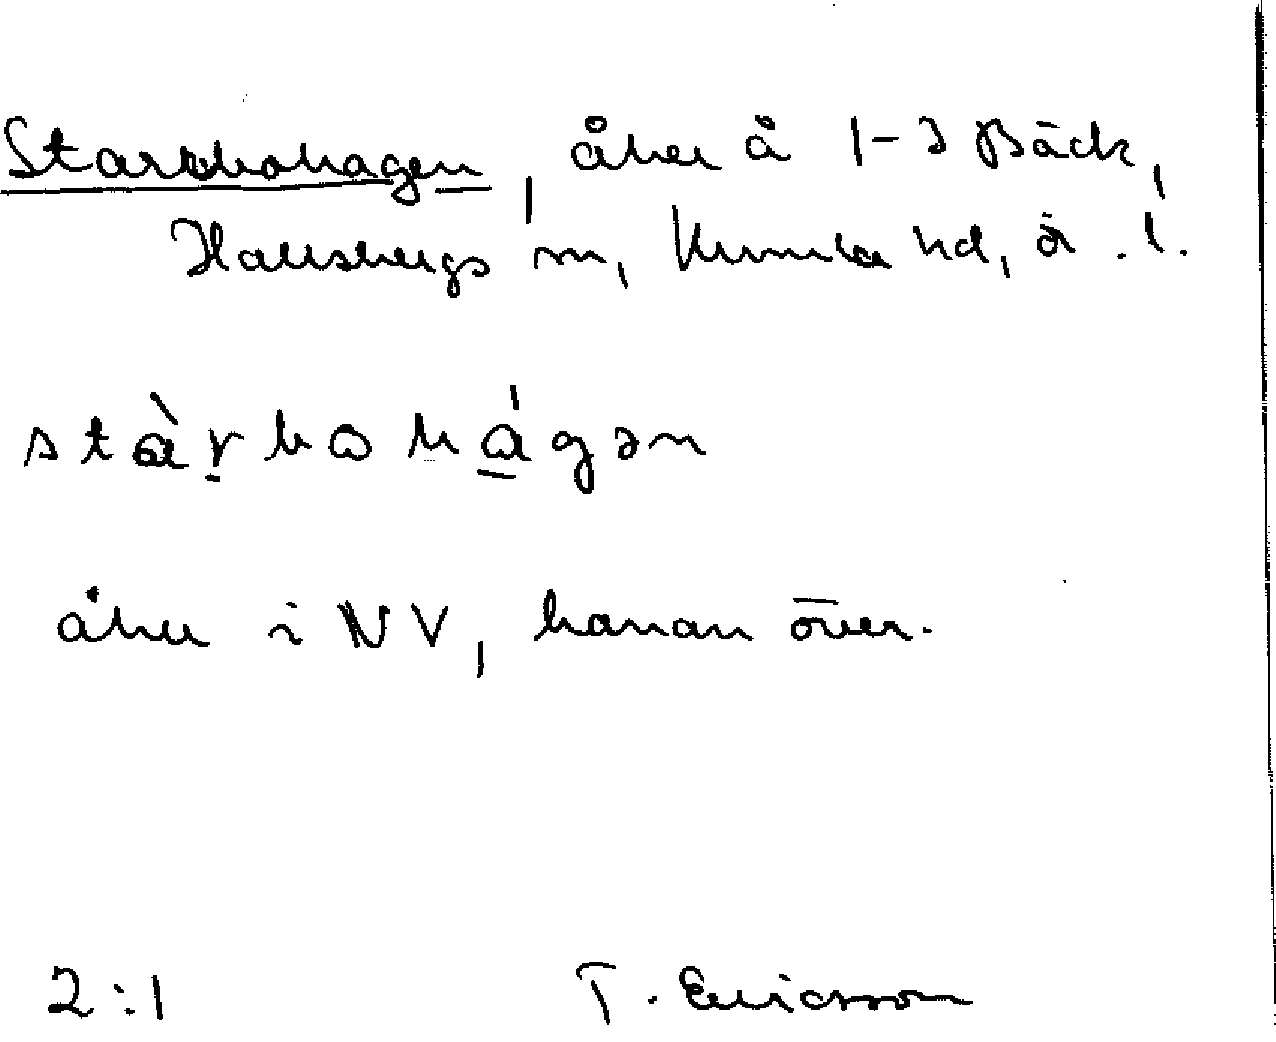 Starrbohagen, åker å 1-3 Bäck,
Hallsbergs sn, Kumla hd, ör. l.
stàrbohágən
åker i NV, banan över.
2:1 T. Ericsson